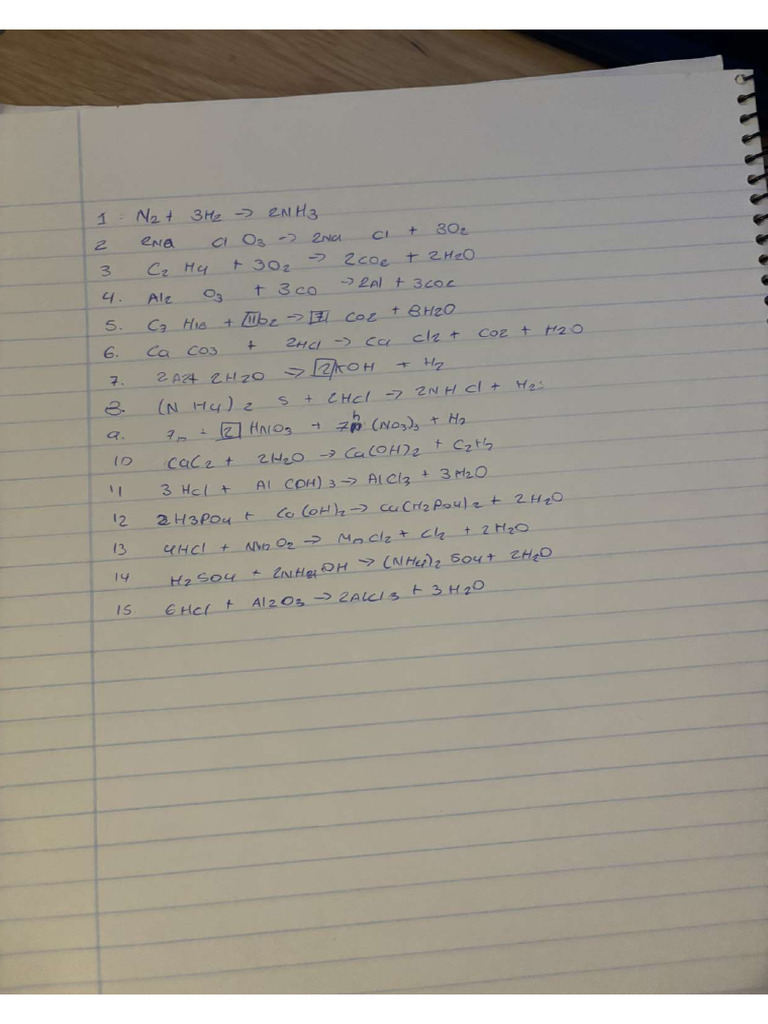 1 : N2 + 3H2 → 2NH3
2 2Na Cl O3 → 2Na Cl + 3O2
3 C2 H4 + 3O2 → 2CO2 + 2H2O
4. Al2 O3 + 3CO → 2Al + 3CO2
5. C7 H16 + 11O2 → 7 CO2 + 8H2O
6. Ca CO3 + 2HCl → Ca Cl2 + CO2 + H2O
7. 2H2O → 2 KOH + H2
8. (N H4) 2 S + 2HCl → 2NH Cl + H2
9. 2 HNO3 + (NO3)3 + H2
10 CaC2 + 2H2O → Ca(OH)2 + C2H2
11 3 HCl + Al (OH)3 → AlCl3 + 3H2O
12 2H3PO4 + Ca(OH)2 → Ca(H2PO4)2 + 2H2O
13 4HCl + MnO2 → MnCl2 + Cl2 + 2H2O
14 H2SO4 + 2NH4OH → (NH4)2 SO4 + 2H2O
15 6HCl + Al2O3 → 2AlCl3 + 3H2O